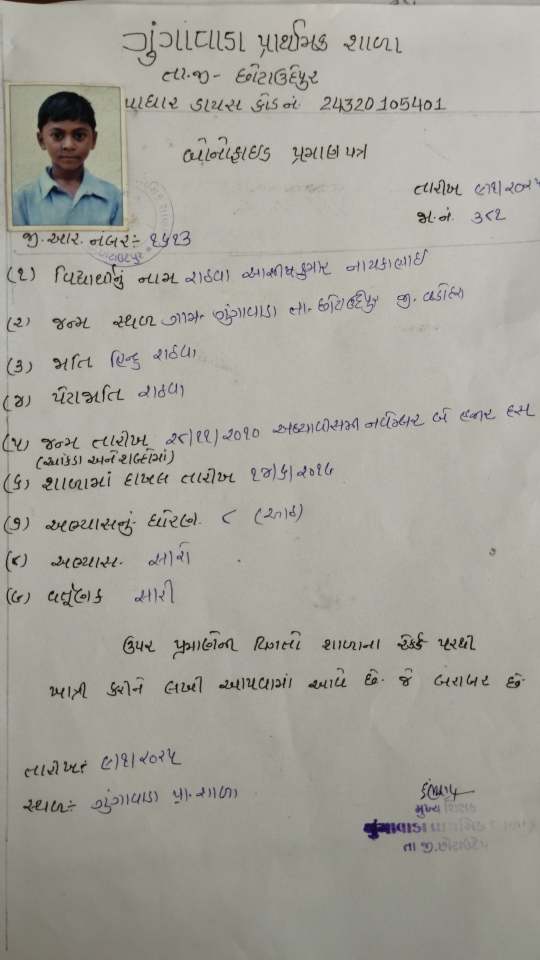 ગુંગાવાડા પ્રાથમિક શાળા
તા.જી- છોટાઉદેપુર
ડાયસ કોડ નં. 24320105401
બોનોફાઇડ પ્રમાણ પત્ર
તારીખ ૯/૧/૨૦૨૫
જા.નં. ૩૮૧
જી.આર. નંબર:- ૧૫૧૩
(૧) વિદ્યાર્થીનું નામ રાઠવા આશીષકુમાર નાયકાભાઈ
(૨) જન્મ સ્થળ ગામ- ગુંગાવાડા તા- છોટાઉદેપુર જી. વડોદરા
(૩) જાતિ હિન્દુ રાઠવા
(૪) પેટાજાતિ રાઠવા
(૫) જન્મ તારીખ ૨૮/૧૧/૨૦૧૦ અઠ્યાવીસમી નવેમ્બર બે હજાર દસ
(આંકડા અને શબ્દોમાં)
(૬) શાળામાં દાખલ તારીખ ૧૪/૬/૨૦૧૬
(૭) અભ્યાસનું ધોરણ. ૮ (આઠ)
(૮) અભ્યાસ. સારો
(૯) વર્તૂણક સારી
ઉપર પ્રમાણેની વિગતો શાળાના રેકર્ડ પરથી
ખાત્રી કરીને લખી આપવામાં આવે છે. જે બરાબર છે.
તારીખ: ૯/૧/૨૦૨૫
સ્થળ:- ગુંગાવાડા પ્રા. શાળા
મુખ્ય શિક્ષક
ગુંગાવાડા પ્રાથમિક શાળા
તા જી.છોટાઉદેપુર